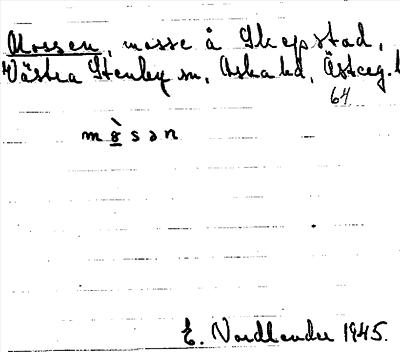 Mossen, mosse å Skepstad,
Västra Stenby sn, Aska hd, Östeg.
64
m ò̱ s ə n
E. Nordlander 1945.